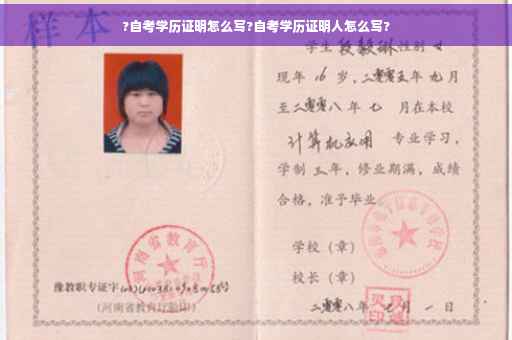 ?自考学历证明怎么写?自考学历证明人怎么写?
样本
学生段毅琳性别女
现年16岁，二零零五年九月
至二零零八年七 月在本校
计算机应用 专业学习，
学制三年，修业期满，成绩
合格，准予毕业
学校（章）
校长（章）
二零零八年七月一日
河南省教育厅
豫教职专证字
（河南省教育厅验印）